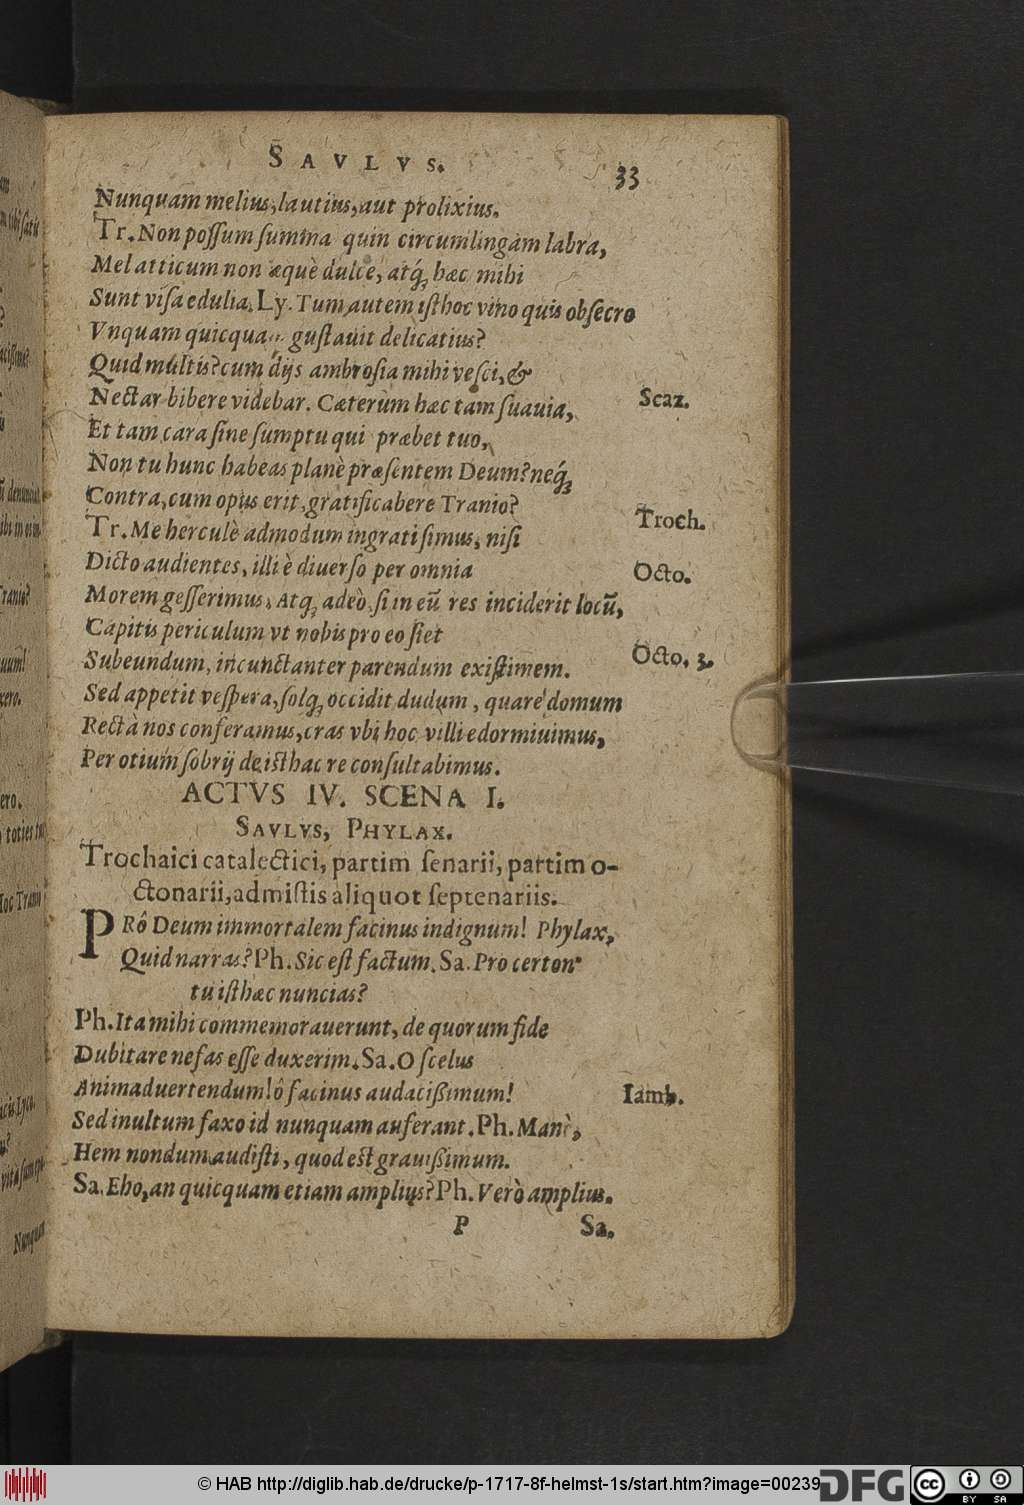 SAVLVS.
33
Nunquam melius, lautius, aut prolixius.
Tr. Non possum summa quin circumlingam labra,
Mel atticum non æquè dulce, atq́; hæc mihi
Sunt visa edulia. Ly. Tum autem isthoc vino quis obsecro
Vnquam quicquam gustauit delicatius?
Quid multis? cum dijs ambrosia mihi vesci, &
Nectar bibere videbar. Cæterùm hæc tam suauia,
Scaz.
Et tam cara sine sumptu qui præbet tuo,
Non tu hunc habeas planè præsentem Deum? neq́;
Contra, cum opus erit, gratificabere Tranio?
Troch.
Tr. Me herculè admodum ingrati simus, nisi
Dicto audientes, illi è diuerso per omnia
Octo.
Morem gesserimus. Atq; adeò si in eũ res inciderit locũ,
Capitis periculum vt nobis pro eo siet
Octo. 3.
Subeundum, incunctanter parendum existimem.
Sed appetit vespera, solq; occidit dudum, quare domum
Rectà nos conferamus, cras vbi hoc villi edormiuimus,
Per otium sobrij de isthac re consultabimus.
ACTVS IV. SCENA I.
SAVLVS, PHYLAX.
Trochaici catalectici, partim senarii, partim o-
ctonarii, admistis aliquot septenariis.
PRô Deum immortalem facinus indignum! Phylax,
Quid narras? Ph. Sic est factum. Sa. Pro certon'
tu isthæc nuncias?
Ph. Ita mihi commemorauerunt, de quorum fide
Dubitare nefas esse duxerim. Sa. O scelus
Animaduertendum! ô facinus audacißimum!
Iamb.
Sed inultum faxo id nunquam auferant. Ph. Manè,
Hem nondum audisti, quod est grauißimum.
Sa. Eho, an quicquam etiam amplius? Ph. Verò amplius.
P
Sa.
© HAB http://diglib.hab.de/drucke/p-1717-8f-helmst-1s/start.htm?image=00239
DFG
cc
BY SA